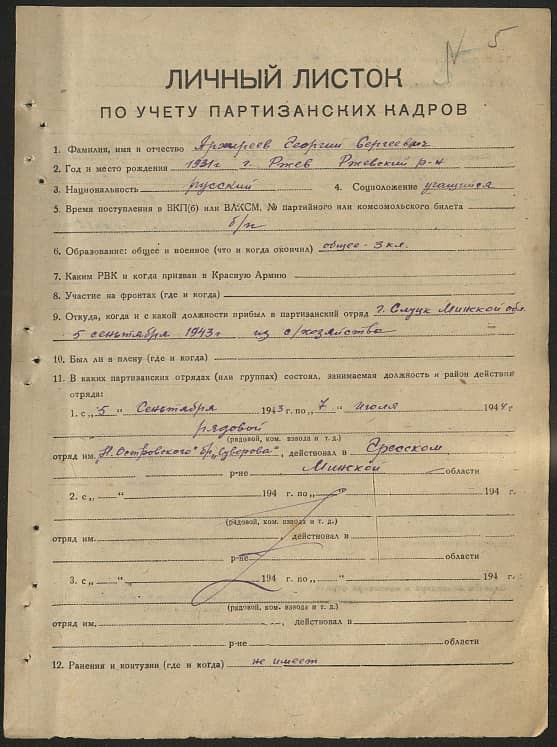 5
ЛИЧНЫЙ ЛИСТОК
ПО УЧЕТУ ПАРТИЗАНСКИХ КАДРОВ
1. Фамилия, имя и отчество Георгий Сергеевич
2. Год и место рождения 1931 г. г. Ржев Ржевский р-н
3. Национальность русский 4. Соцположение учащийся
5. Время поступления в ВКП(б) или ВЛКСМ, № партийного или комсомольского билета
б/п
6. Образование: общее и военное (что и когда окончил) общее - 3 кл.
7. Каким РВК и когда призван в Красную Армию
8. Участие на фронтах (где и когда)
9. Откуда, когда и с какой должности прибыл в партизанский отряд г. Слуцк Минской обл.
5 сеньтября 1943 г из с/хозяйства
10. Был ли в плену (где и когда)
11. В каких партизанских отрядах (или группах) состоял, занимаемая должность и район действия
отряда:
1. с „5" Сеньтября 1943 г. по „7" июля 1944 г.
рядовой
(рядовой, ком. взвода и т. д.)
отряд им. Н. Островского бр. „Суворова", действовал в Гресском
р-не Минской области
2. с „ " 194 г. по „ " 194 г.
(рядовой, ком. взвода и т. д.)
отряд им. , действовал в
р-не области
3. с „ " 194 г. по „ " 194 г.
(рядовой, ком. взвода и т. д.)
отряд им. , действовал в
р-не области
12. Ранения и контузии (где и когда) не имеет